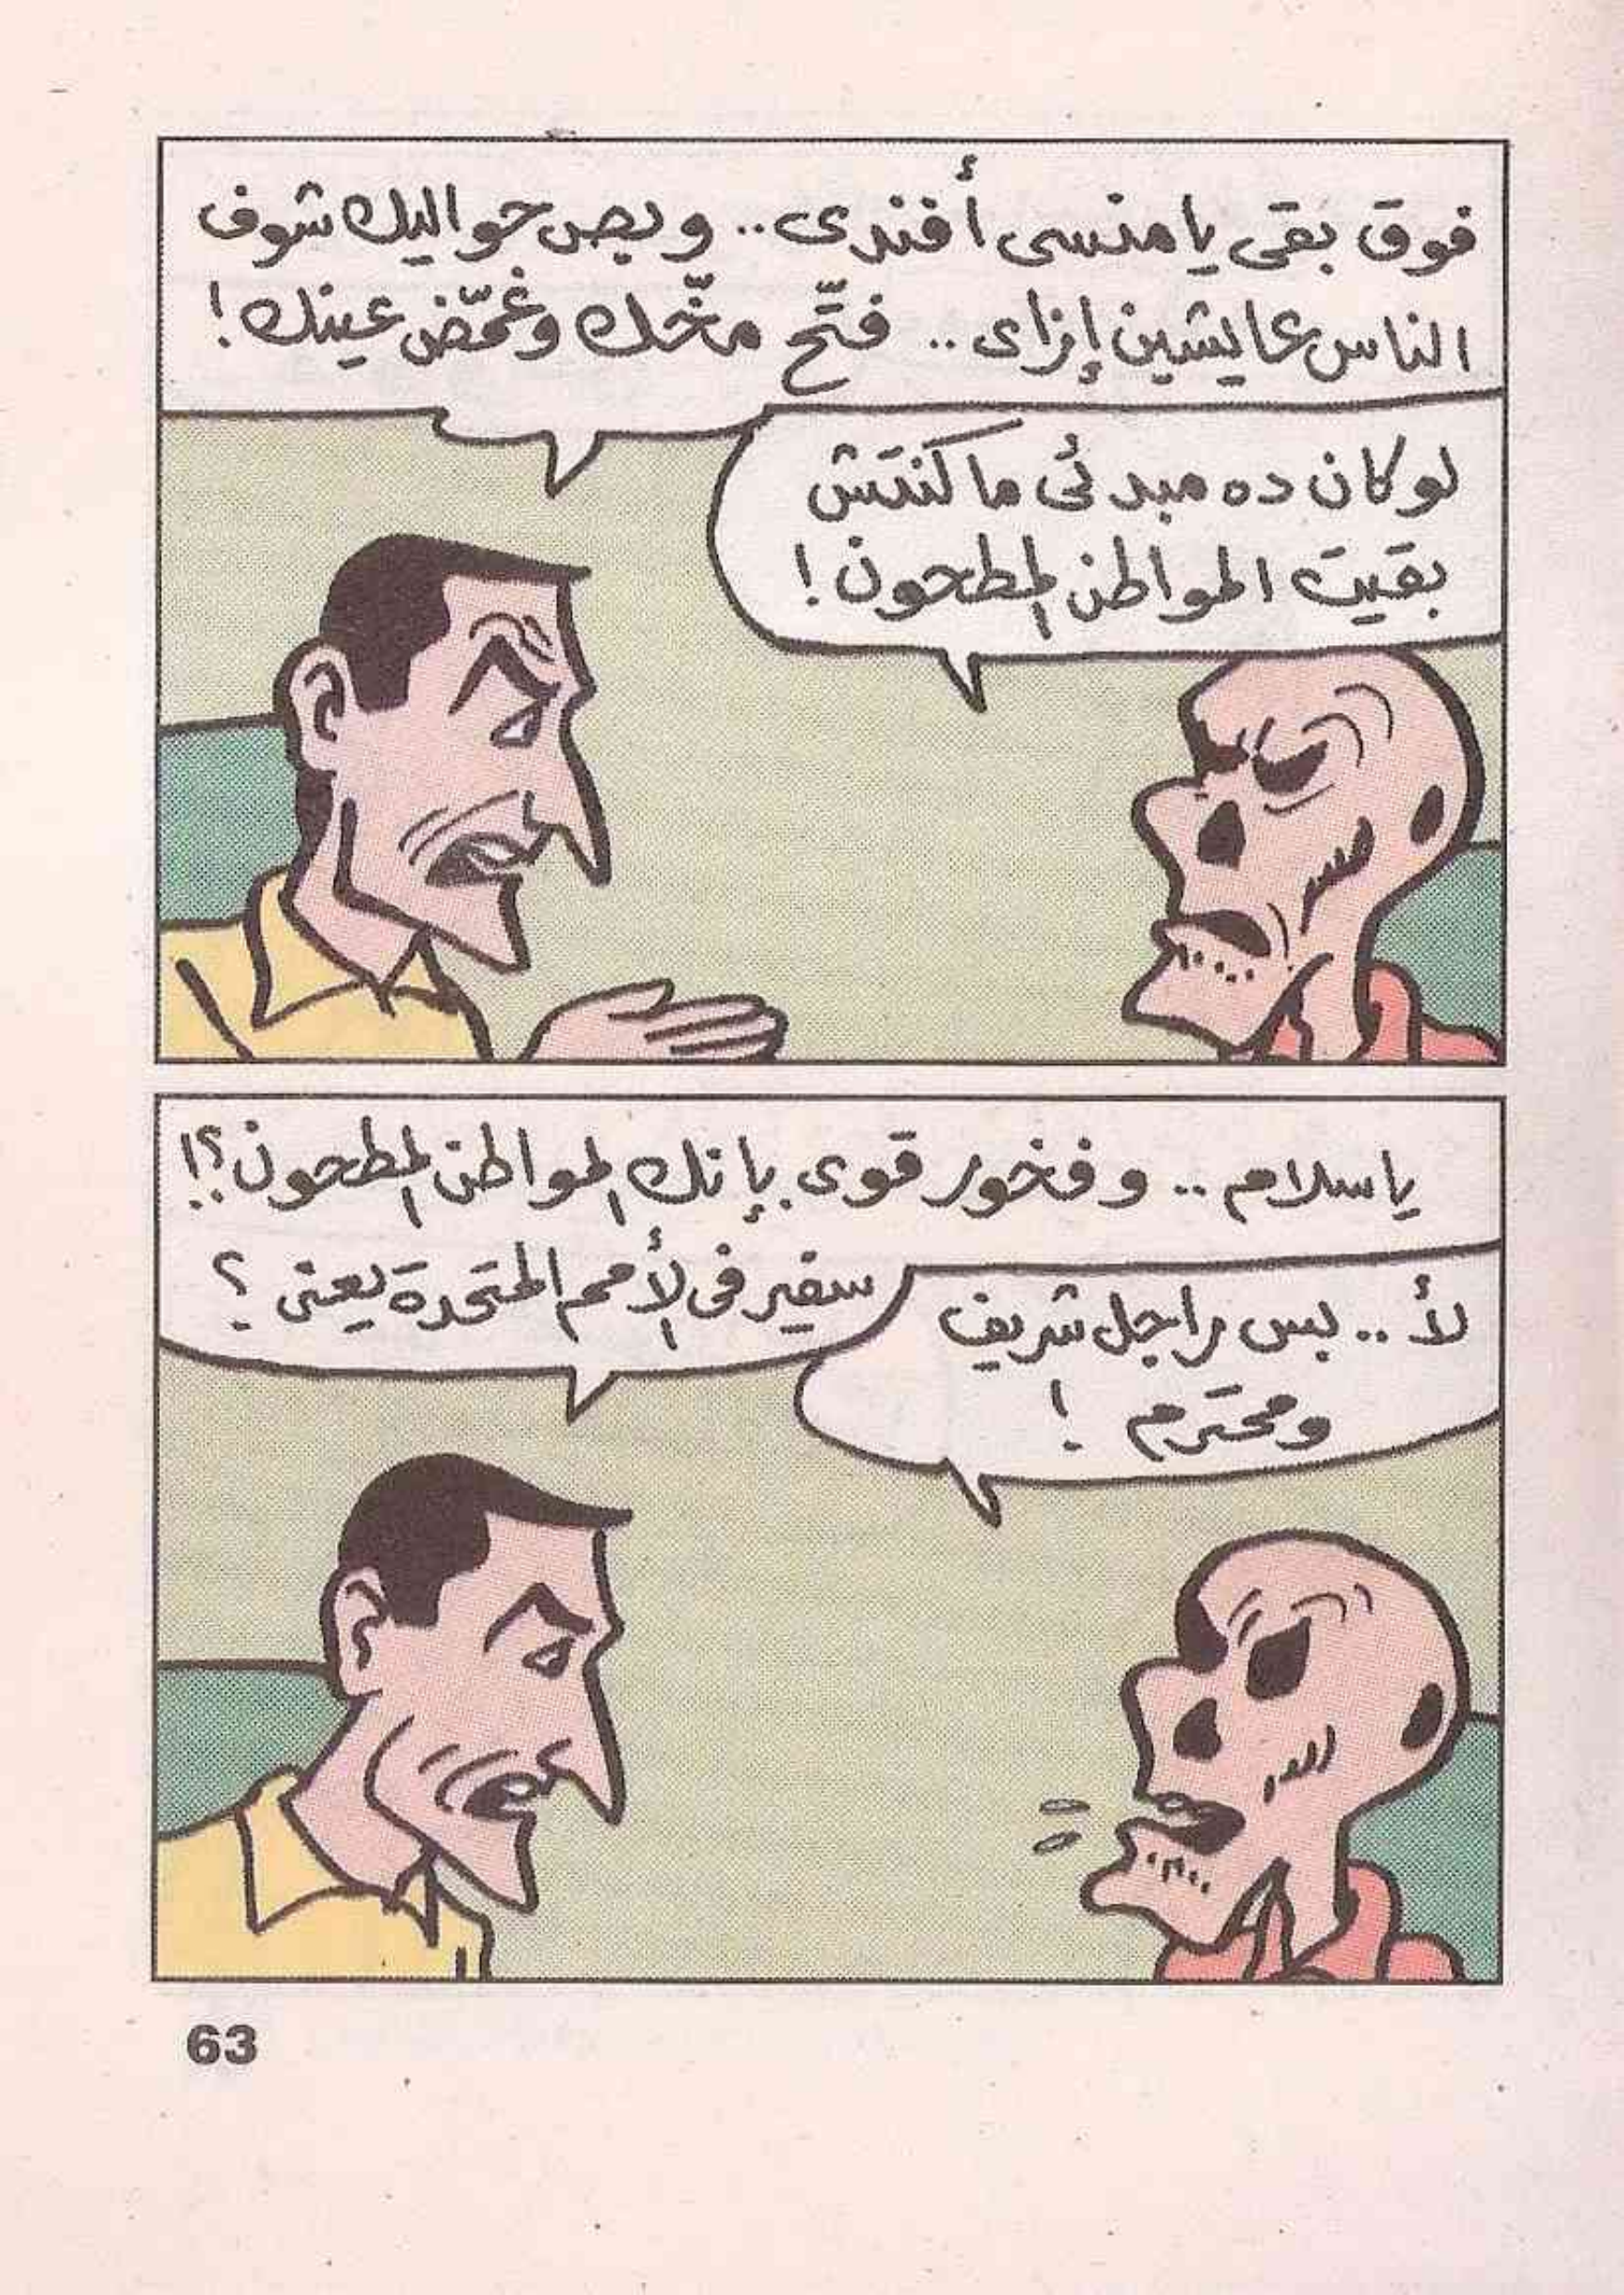 فوق بقى يا منسى أفندى .. وبص حواليك شوف
الناس عايشين إزاى .. فتّح مخّك وغمّض عينك !
لو كان ده مبدئى ما كنتش
بقيت المواطن المطحون !
يا سلام .. وفخور قوى بإنك المواطن المطحون ؟!
سفير فى الأمم المتحدة يعنى ؟
لأ .. بس راجل شريف
ومحترم !
63